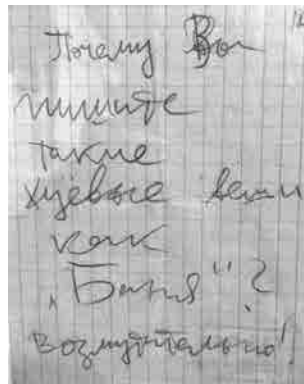 Почему Вы
пишите
такие
хуевые вещи
как
„Баня“?
Возмутительно!